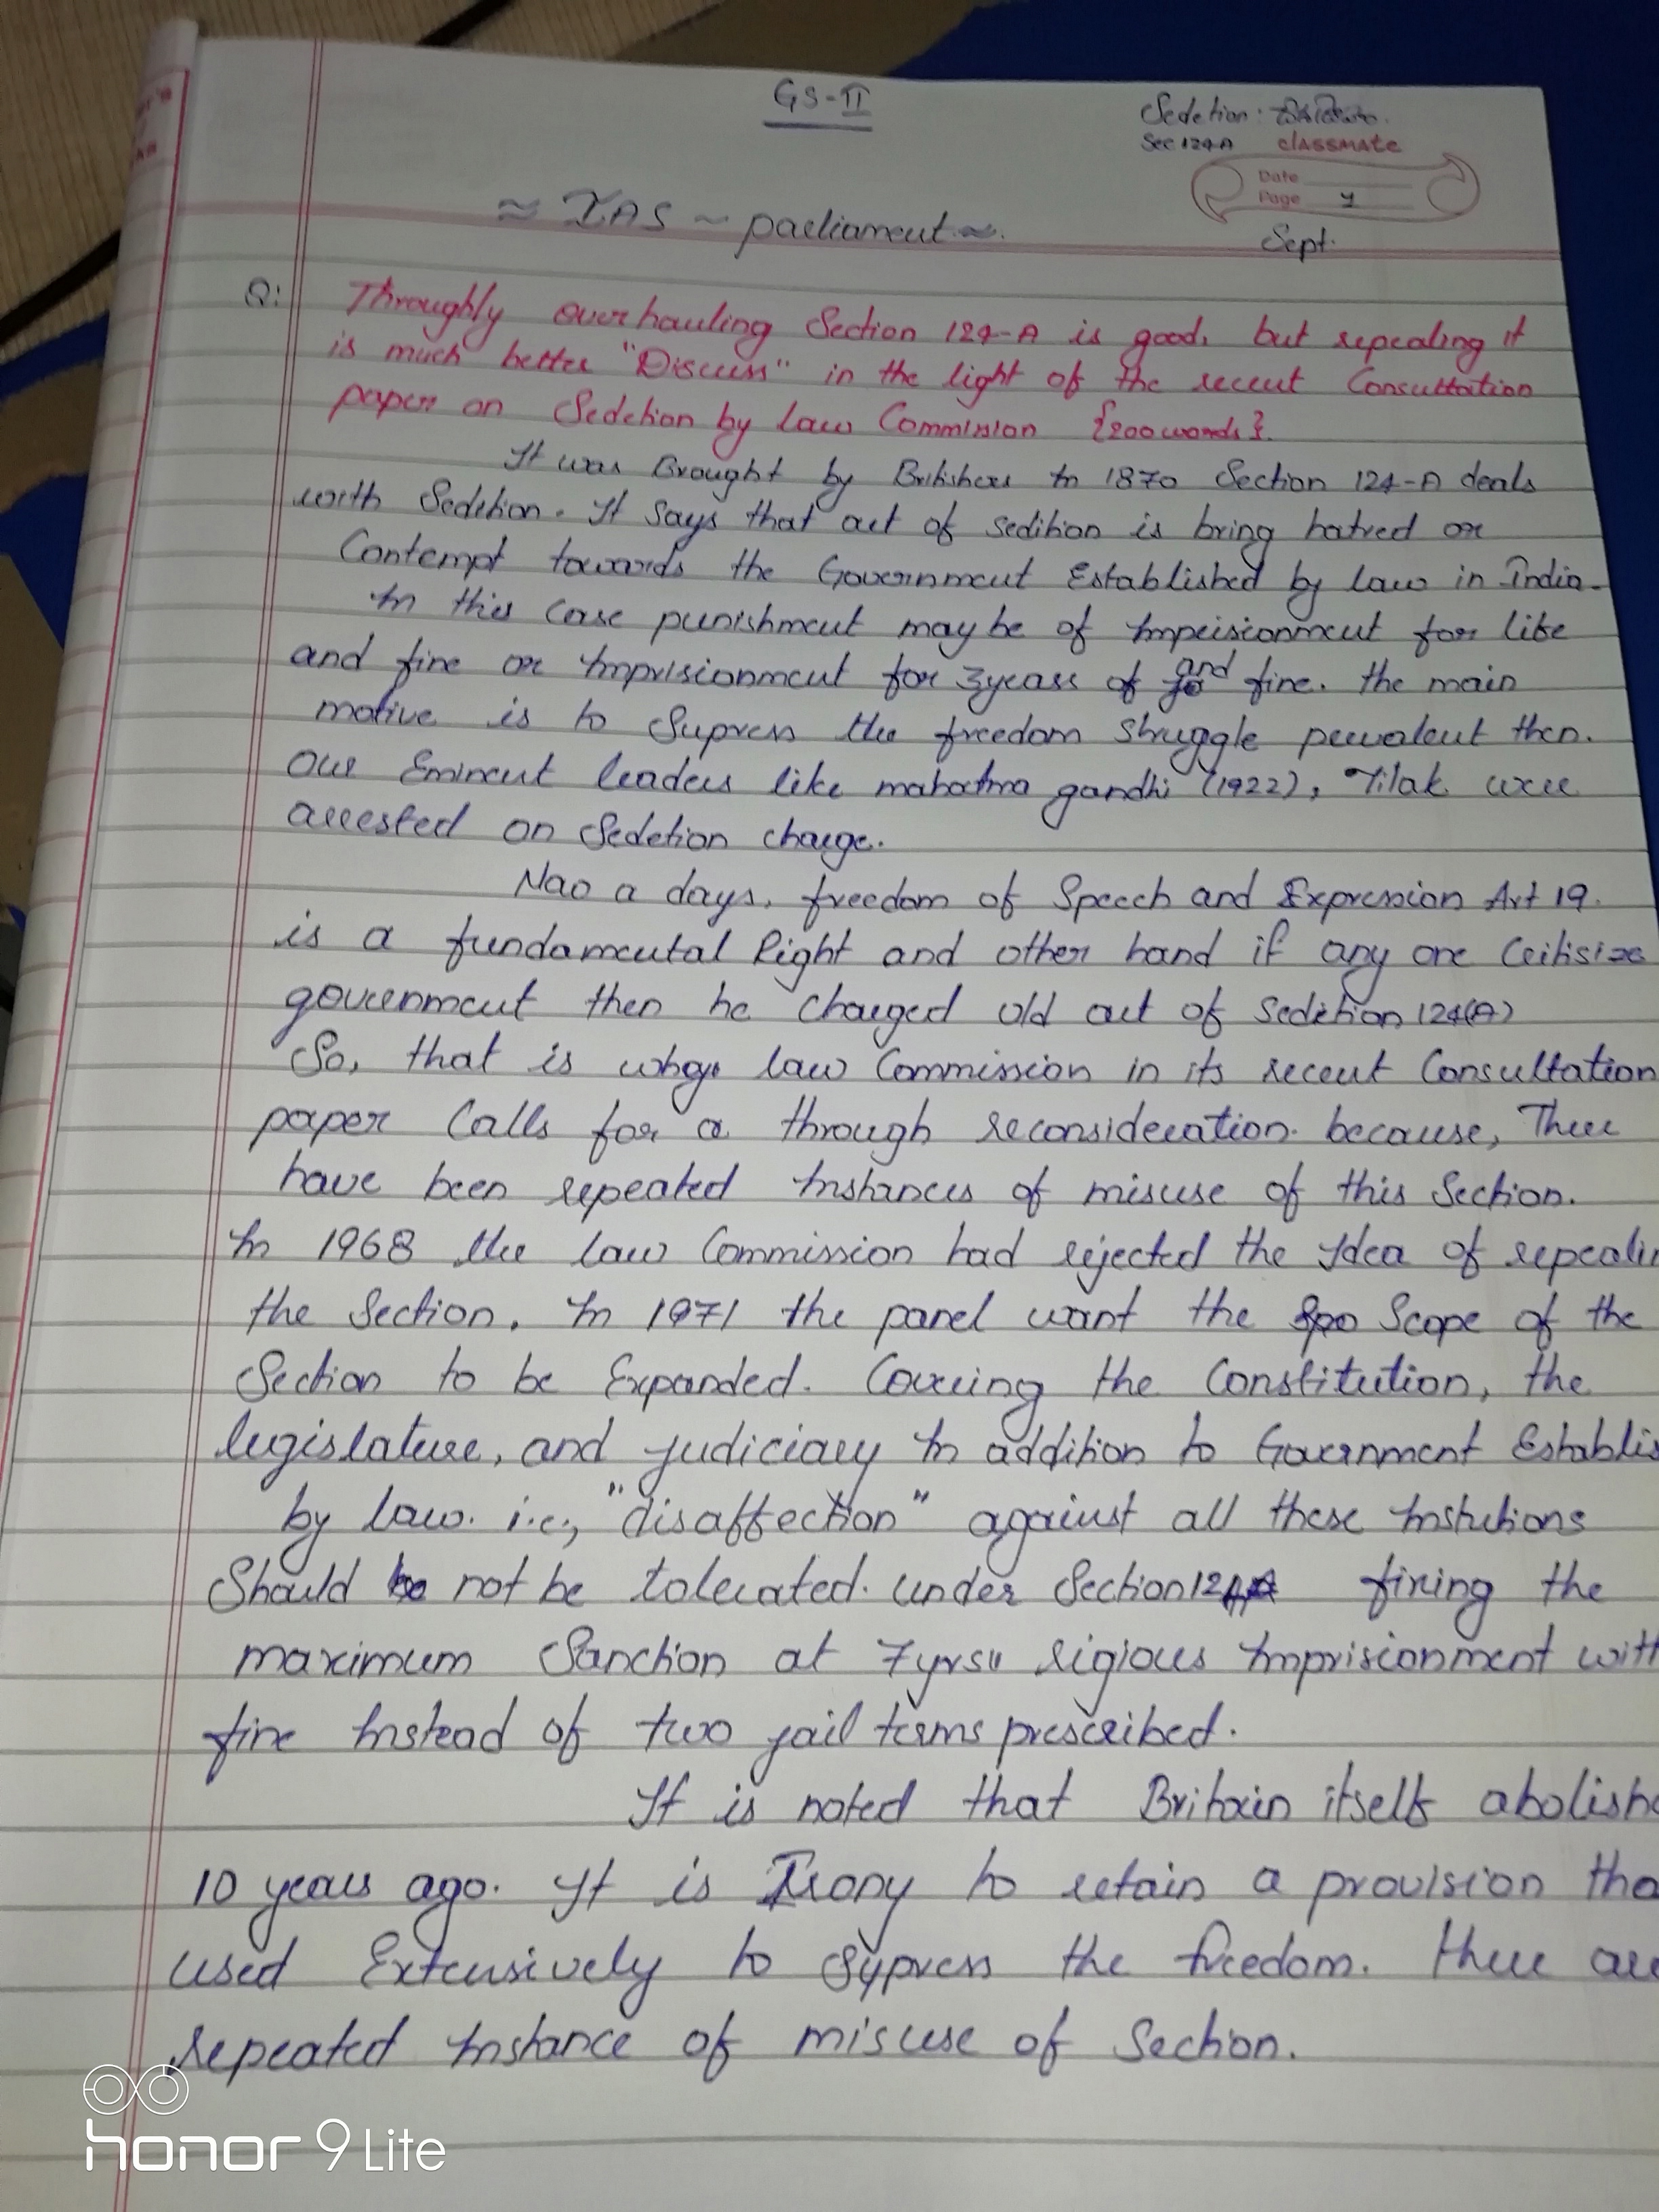 GS-II
Sedetion:
Sec 124-A classmate
Date
Page 4
≈ IAS ~ parliament ≈.
Sept.
Q: Throughly overhauling Section 124-A is good, but repealing it
is much better "Discuss" in the light of the recent Consultation
paper on Sedetion by law Commission {200 words}.
It was Brought by Britishers In 1870 Section 124-A deals
with Sedition. It Says that act of sedition is bring hatred or
Contempt towards the Government Established by law in India.
In this Case punishment may be of Impeisionment for life
and fine or Imprisionment for 3years of and fine. the main
motive is to Supress the freedom struggle prevalent then.
Our Eminent leaders like mahatma gandhi (1922), Tilak were
arrested on Sedetion charge.
Nao a days, freedom of Speech and Expression Art 19.
is a fundamental Right and other hand if any one Critisize
government then he Charged old act of Sedition 124(A)
So, that is why law Commission in its recent Consultation
paper Calls for a through reconsideration. because, There
have been repeated Instances of misuse of this Section.
In 1968 the law Commission had rejected the Idea of repealin
the Section. In 1971 the panel want the Scope of the
Section to be Expanded. Covering the Constitution, the
legislature, and judiciary In addition to Government Establis
by law. i.e., "disaffection" against all these Instutions
Should not be tolerated. under Section 124A fixing the
maximum Sanction at 7yrs rigious Imprisionment with
fine Instead of two jail terms prescribed.
It is noted that Britain itself abolishe
10 years ago. It is Irony to retain a provision tha
used Extensively to Sypress the freedom. there are
repeated Instance of misuse of Section.
honor 9 Lite